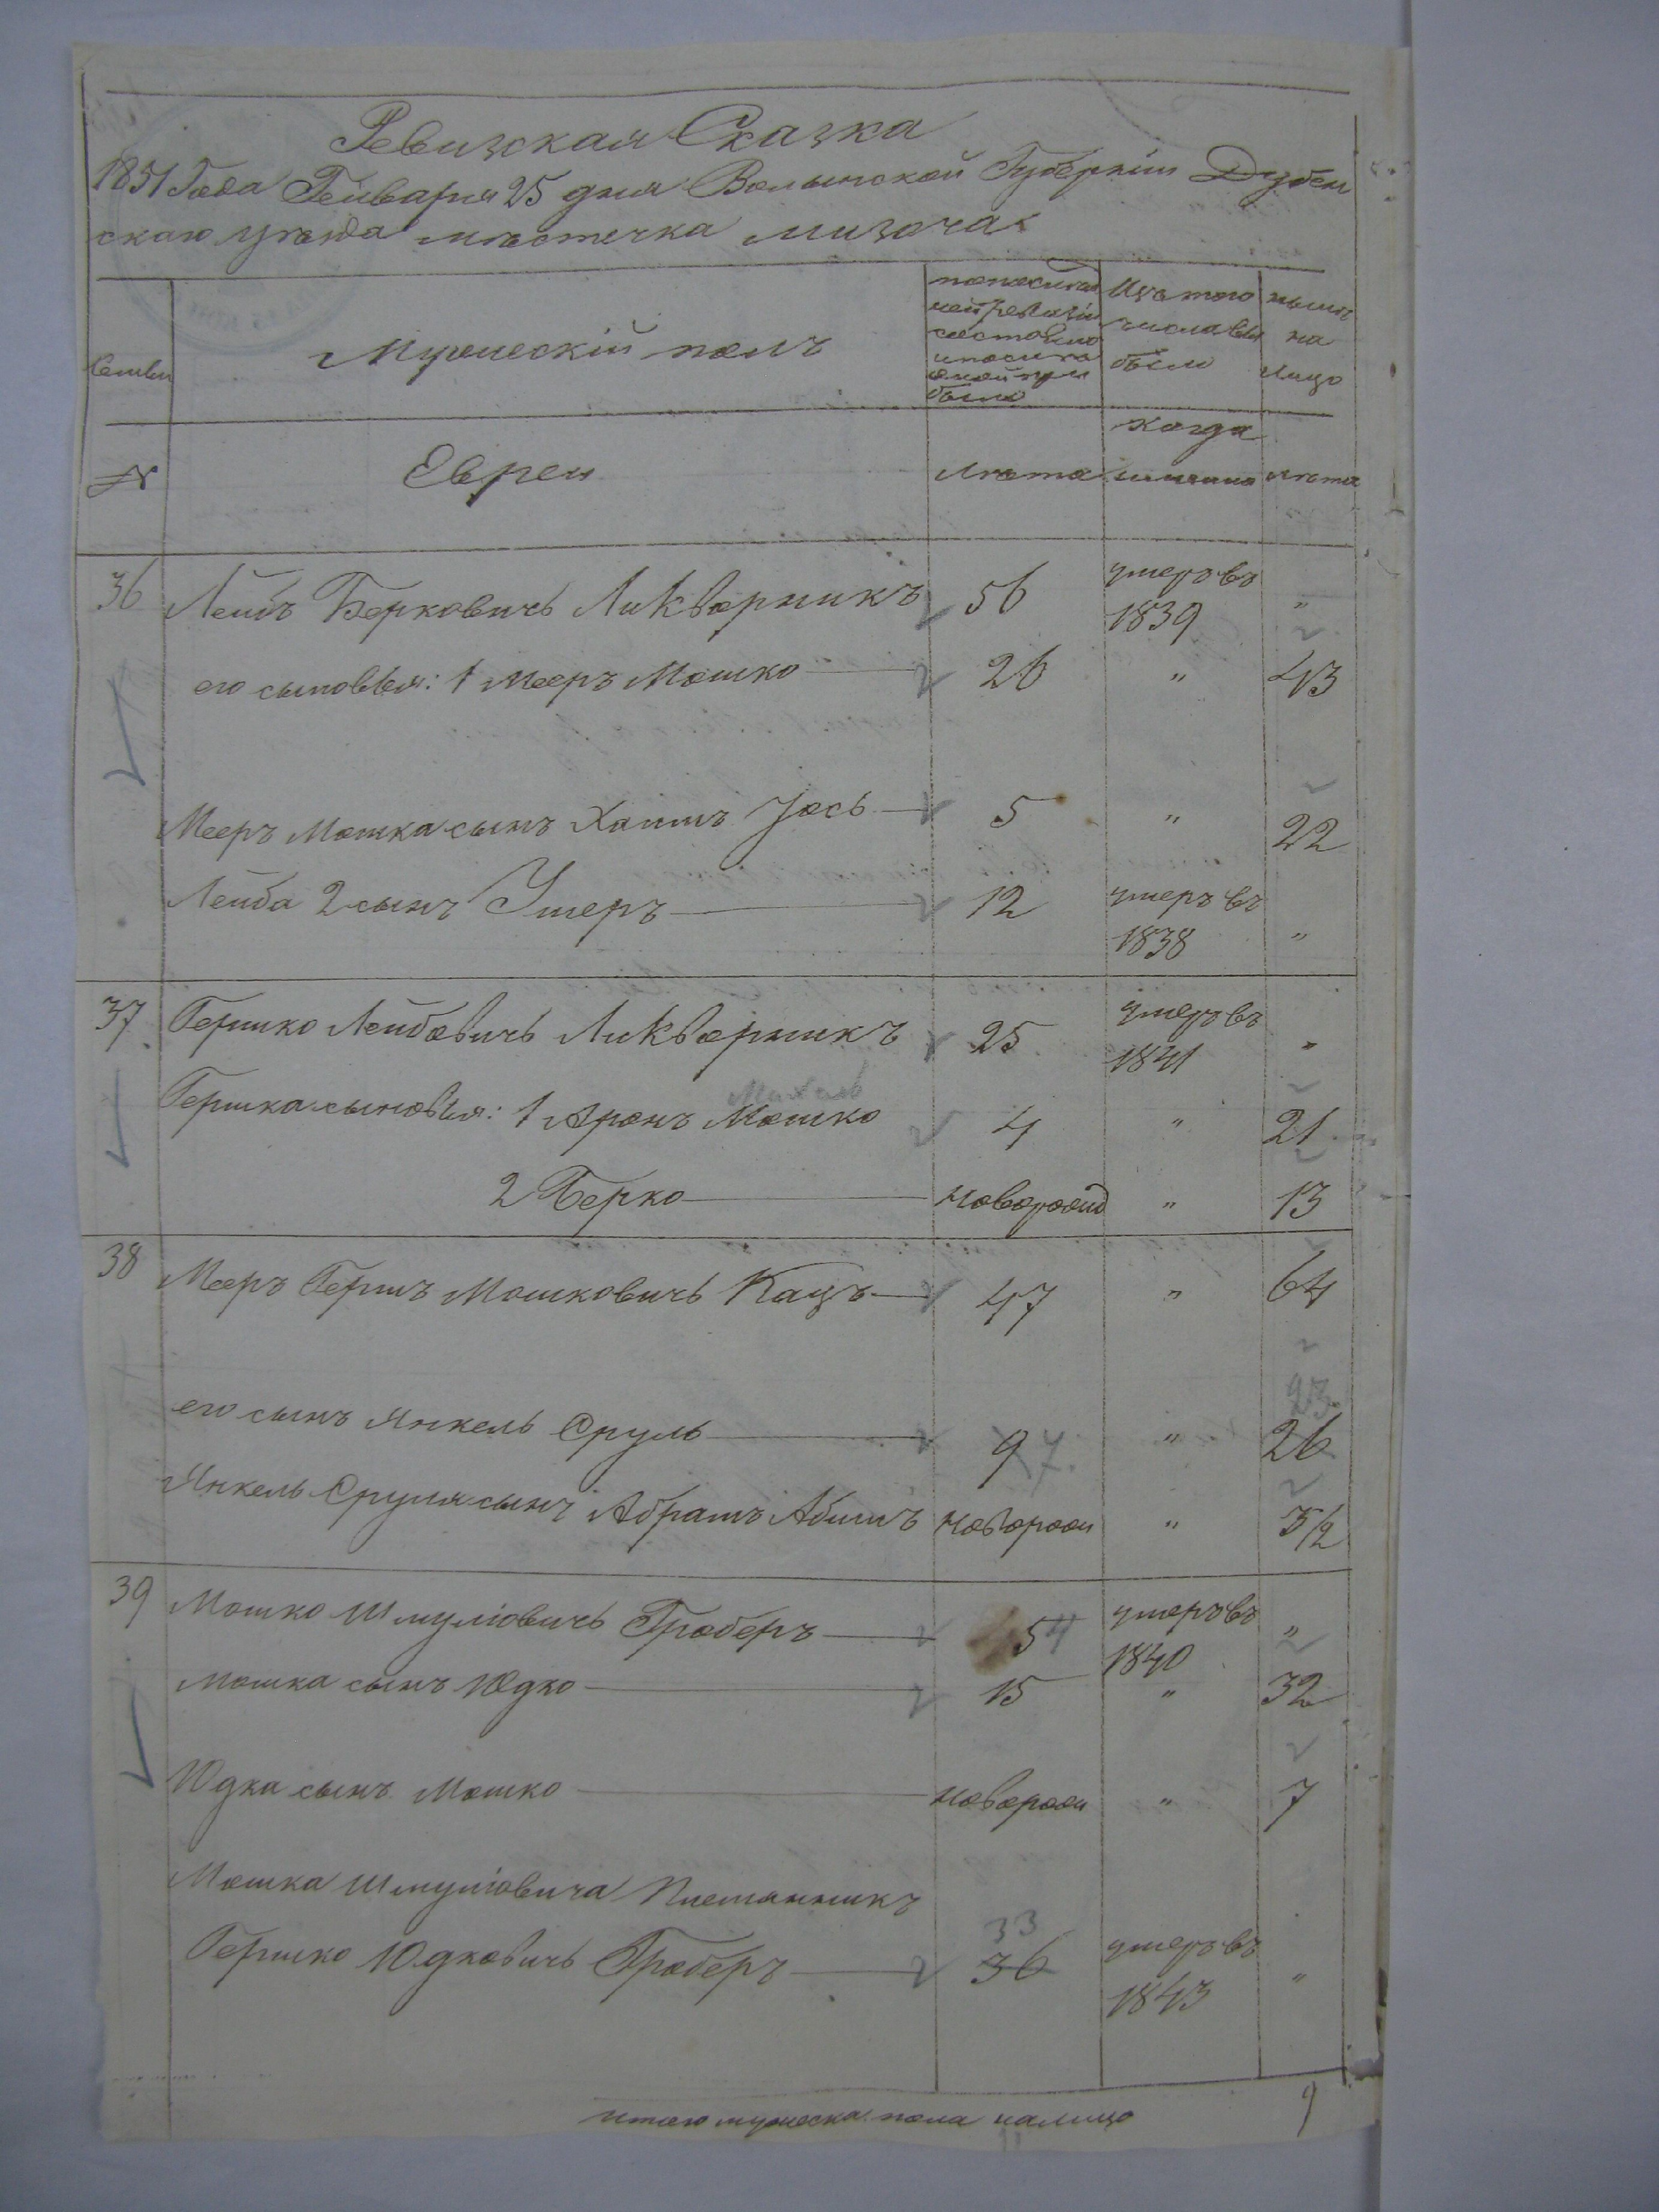 Ревизская Сказка
1851 Года Генваря 25 дня Волынской Губернiи Дубен
скаго уезда местечка мизоча
Семьи
Мужескiй полъ
по последней ревизiи состояло и после оной прибыло
Изъ того числа выбыло
ныне на лицо
№
Евреи
Лета
когда именно
лета
36 Лейбъ Берковичь Ликворникъ 56 умеръ въ 1839 "
его сыновья: 1 Мееръ Мошко 26 " 43
Мееръ Мошка сынъ Хаимъ Iось 5 " 22
Лейба 2 сынъ Ушеръ 12 умеръ въ 1838 "
37 Гершко Лейбовичь Ликворникъ 25 умеръ въ 1841 "
Гершка сыновья: 1 Аронъ Мошко 4 " 21
2 Берко новорожд " 13
38 Мееръ Гершъ Мошковичь Кацъ 47 " 64
23
его сынъ Янкель Сруль 9 7 " 26
Янкель Сруля сынъ Абрамъ Абишъ новорож " 3/2
39 Мошко Шмулiовичь Гроберъ 54 умеръ въ 1840 "
Мошка сынъ Юдко 15 " 32
Юдка сынъ Мошко новорож " 7
Мошка Шмулiовича Племянникъ
33
Гершко Юдковичь Гроберъ 36 умеръ въ 1843 "
итого мужеска пола налицо 9